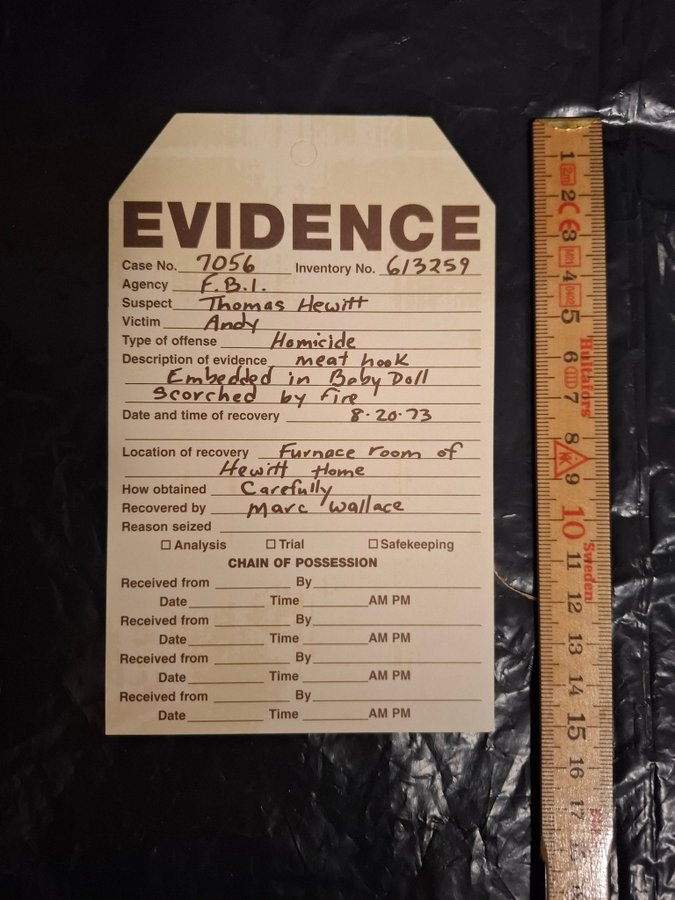 EVIDENCE
Case No. 7056 Inventory No. 613259
Agency F.B.I.
Suspect Thomas Hewitt
Victim Andy
Type of offense Homicide
Description of evidence meat hook
Embedded in Baby Doll
Scorched by fire
Date and time of recovery 8-20-73
Location of recovery Furnace room of
Hewitt Home
How obtained Carefully
Recovered by Marc Wallace
Reason seized
☐ Analysis ☐ Trial ☐ Safekeeping
CHAIN OF POSSESSION
Received from By
Date Time AM PM
Received from By
Date Time AM PM
Received from By
Date Time AM PM
Received from By
Date Time AM PM
1
2
3
4
5
6
7
8
9
10
11
12
13
14
15
16
17
Hultafors
Sweden